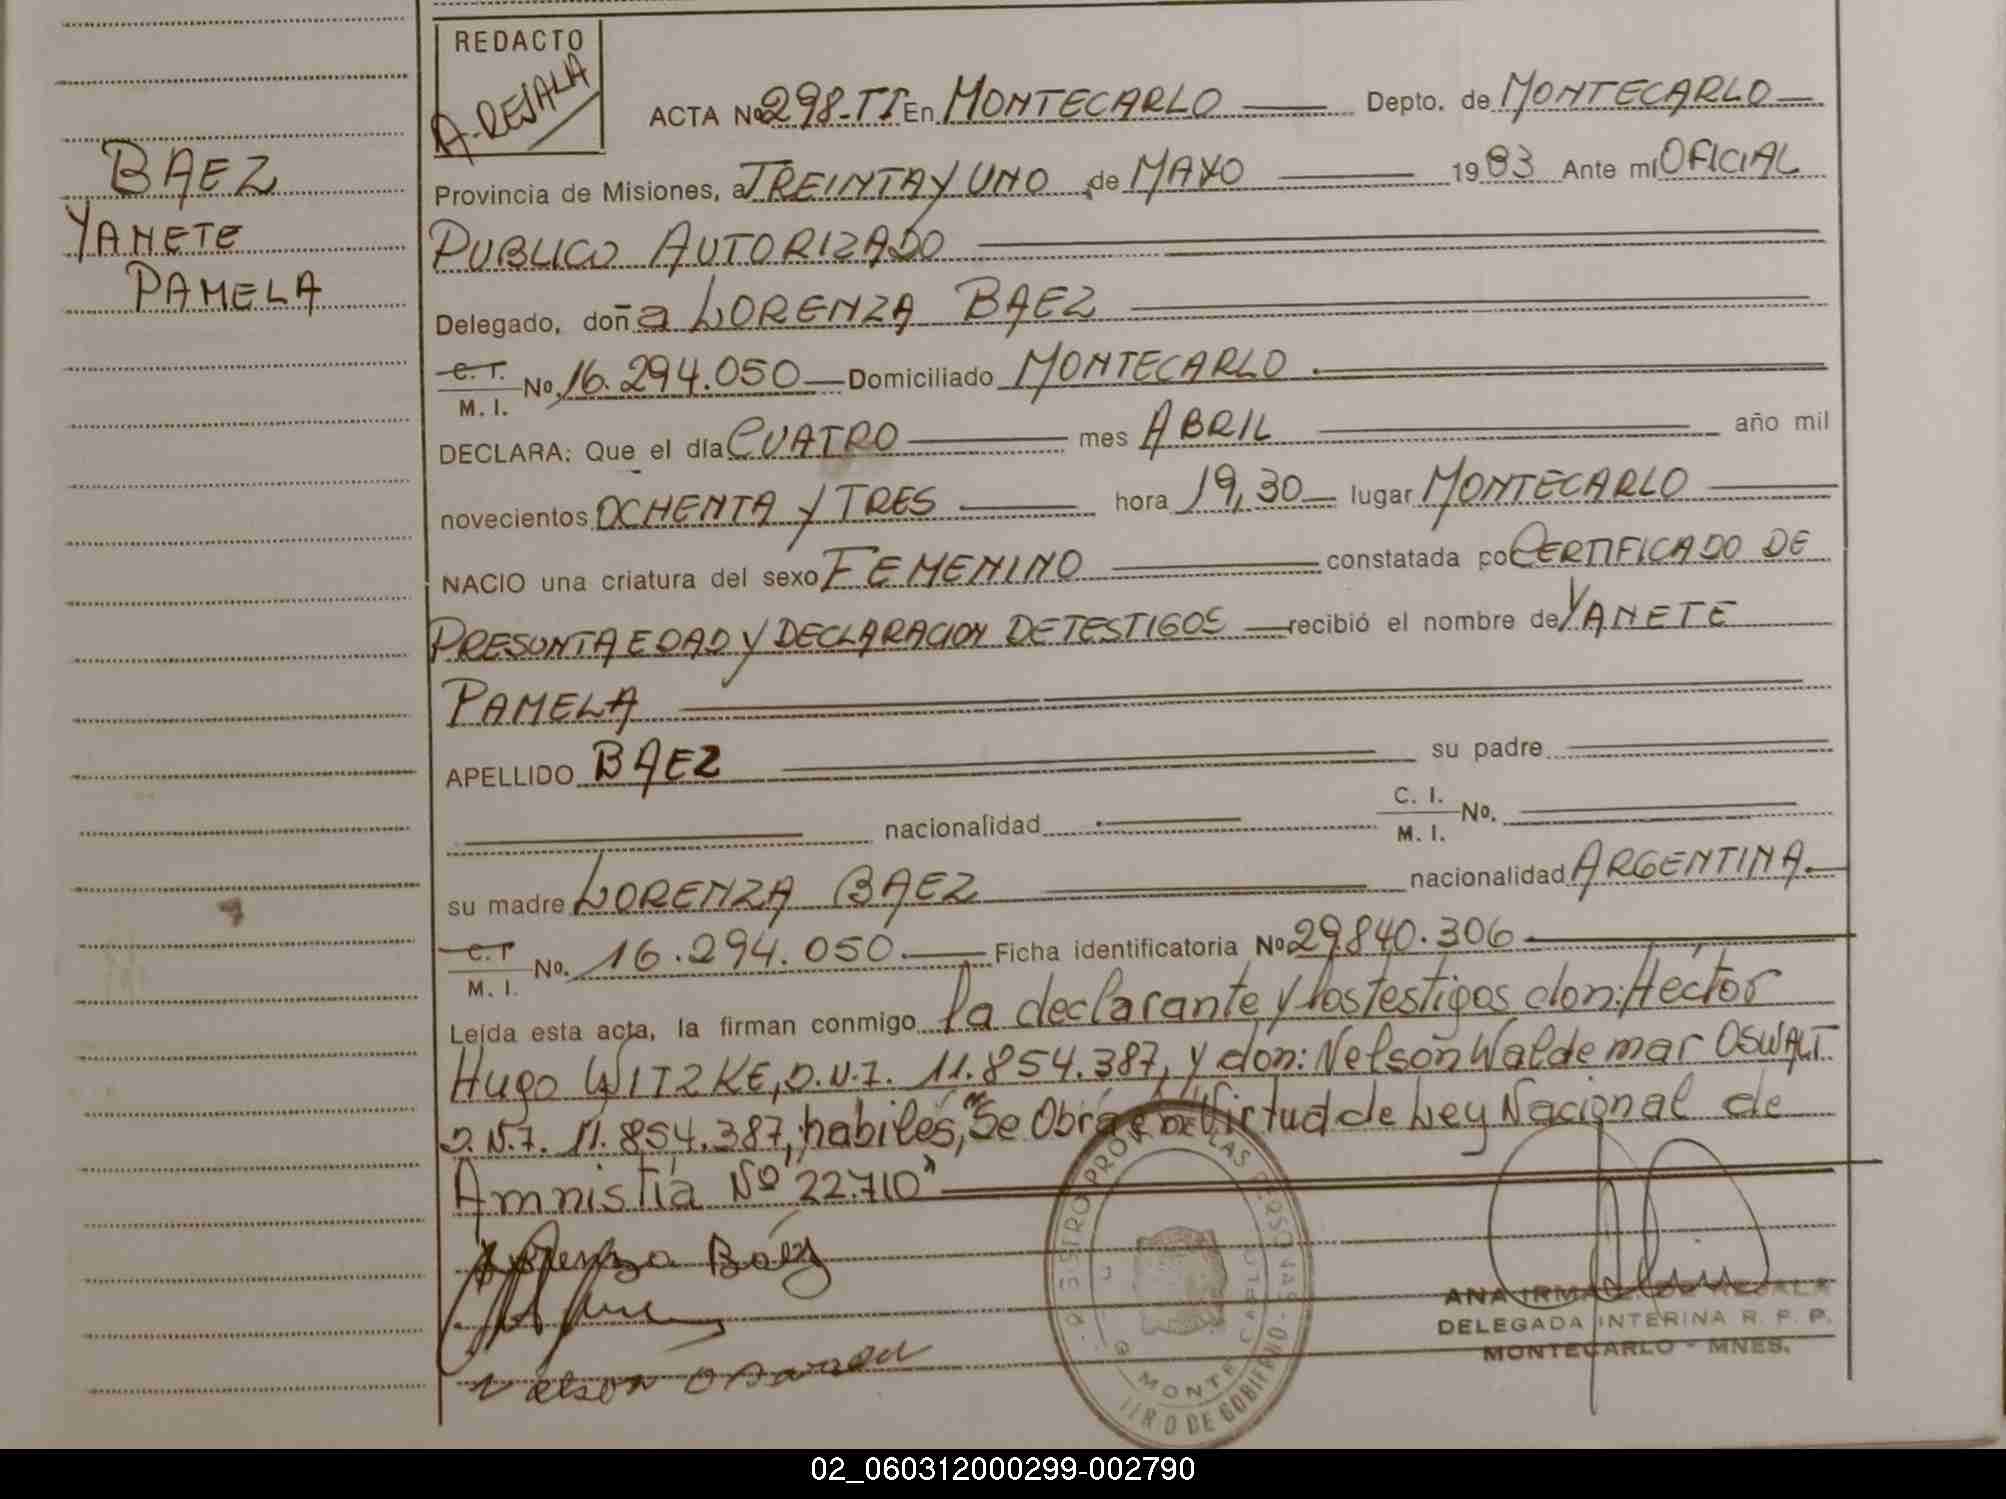 REDACTO
A. REJALA
ACTA Nº 298-TI En MONTECARLO Depto. de MONTECARLO
BAEZ
YANETE
PAMELA
Provincia de Misiones, a TREINTA Y UNO de MAYO 1983 Ante mí OFICIAL
PUBLICO AUTORIZADO
Delegado, doña LORENZA BAEZ
C. I.
M. I. Nº. 16.294.050 Domiciliado MONTECARLO
DECLARA: Que el día CUATRO mes ABRIL año mil
novecientos OCHENTA Y TRES hora 19,30 lugar MONTECARLO
NACIO una criatura del sexo FEMENINO constatada po CERTIFICADO DE
PRESUNTA EDAD Y DECLARACION DE TESTIGOS recibió el nombre de YANETE
PAMELA
APELLIDO BAEZ su padre
nacionalidad C. I.
M. I. Nº.
su madre LORENZA BAEZ nacionalidad ARGENTINA.
C. I.
M. I. Nº. 16.294.050. Ficha identificatoria Nº 29.840.306
Leída esta acta, la firman conmigo la declarante y los testigos don: Héctor
Hugo WITZKE, D.N.I. 11.854.387, y don: Nelson Waldemar OSWALT
D.N.I. 11.854.387, habiles, "Se Obra en Virtud de Ley Nacional de
Amnistía Nº 22.710"
Lorenza Baéz
Nelson
ANA IRMA DE REJALA
DELEGADA INTERINA R. P. P.
MONTECARLO - MNES.
02_060312000299-002790